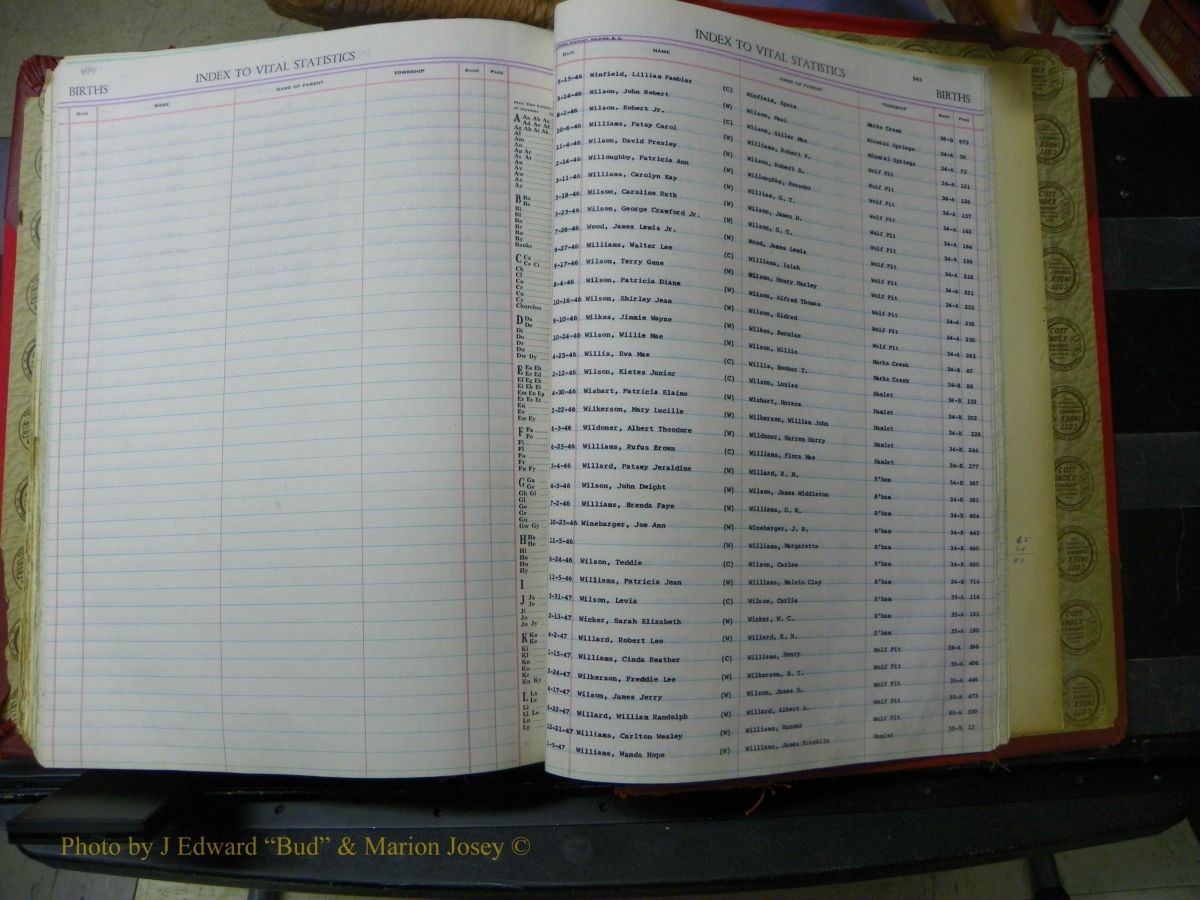 INDEX TO VITAL STATISTICS
BIRTHS
DATE NAME NAME OF PARENT TOWNSHIP BOOK PAGE
A Aa Ab Ac
Ad Ae Af
Ag Ah Ai Ak
Al
Am
An
Ap Ar
As At
Au
Av
Aw
Ax
Ay
B Ba
Be
Bi
Bl
Bo
Br
Bu
By
Banks
C Ca
Ce Ci
Ch
Cl
Co
Cr
Cu
Cy
Churches
D Da
De
Di
Do
Dr
Du
Dw Dy
E Ea Eb
Ec Ed
Ef Eg Eh
Ei Ek El
Em En Ep
Er Es Et
Eu
Ev
Ew Ey
F Fa
Fe
Fi
Fl
Fo
Fr
Fu Fy
G Ga
Ge
Gh Gi
Gl
Go
Gr
Gu
Gw Gy
H Ha
He
Hi
Ho
Hu
Hy
I
J Ja
Je
Ji
Jo
Ju Jy
K Ka
Ke
Ki
Kl
Kn
Ko
Kr
Ku Ky
L La
Le
Li
Ll Lo
Lu
Ly
INDEX TO VITAL STATISTICS
BIRTHS
DATE NAME NAME OF PARENT TOWNSHIP BOOK PAGE
5-15-46 Winfield, Lillian (C) Winfield, Marks Creek 38-B 673
3-14-46 Wilson, John Robert (W) Wilson, Paul Mineral Springs 34-A 59
8-1-46 Wilson, Robert Jr. (C) Wilson, Mae Mineral Springs 34-A 73
10-6-46 Williams, Patsy Carol (W) Williams, Robert F. Wolf Pit 34-A 121
11-4-46 Wilson, David Presley (W) Wilson, Robert Wolf Pit 34-A 126
2-14-46 Willoughby, Patricia Ann (W) Willoughby, Wolf Pit 34-A 157
3-11-46 Williams, Carolyn Kay (W) William, G. T. Wolf Pit 34-A
3-18-46 Wilson, Caroline Ruth (W) Wilson, James H. Wolf Pit 34-A
5-23-46 Wilson, George Crawford Jr. (W) Wilson, G. C. Wolf Pit 34-A
7-26-46 Wood, James Lewis Jr. (W) Wood, James Lewis Wolf Pit 34-A 218
9-27-46 Williams, Walter Lee (C) Williams, Isiah Wolf Pit 34-A 231
9-17-46 Wilson, Terry Gene (W) Wilson, Henry Hurley Wolf Pit 34-A 235
8-4-46 Wilson, Patricia Diane (W) Wilson, Alfred Thomas Wolf Pit 34-A 238
10-16-46 Wilson, Shirley Jean (W) Wilson, Eldred Wolf Pit 34-A 250
9-10-46 Wilkes, Jimmie Wayne (W) Wilkes, Bernice Wolf Pit 34-A 265
10-24-46 Wilson, Willie Mae (W) Wilson, Willie Marks Creek 34-B 67
4-25-46 Willis, Eva Mae (C) Willis, Booker T. Marks Creek 34-B 88
2-12-46 Wilson, Kietes Junior (C) Wilson, Louise Hamlet 34-B 152
4-30-46 Wishart, Patricia Elaine (W) Wishart, Horace Hamlet 34-B 202
2-22-46 Wilkerson, Mary Lucille (W) Wilkerson, William John Hamlet 34-B 228
6-3-46 Wildoner, Albert Theodore (W) Wildoner, Warren Harry Hamlet 34-B 244
6-25-46 Williams, Rufus Brown (C) Williams, Flora Mae Hamlet 34-B 277
3-4-46 Willard, Patsey Jeraldine (W) Willard, R. H. R'ham 34-B 567
4-3-46 Wilson, John Dwight (W) Wilson, James Middleton R'ham 34-B 581
7-2-46 Williams, Brenda Faye (W) Williams, G. W. R'ham 34-B 604
10-23-46 Winebarger, Joe Ann (W) Winebarger, J. R. R'ham 34-B 643
11-5-46 (W) Williams, Margarette R'ham 34-B 660
6-24-46 Wilson, Teddie (C) Wilson, Curlee R'ham 34-B 680
11-5-46 Williams, Patricia Jean (W) Williams, Melvin Clay R'ham 34-B 714
5-31-47 Wilson, Levia (C) Wilson, Curlie R'ham 35-A 114
2-13-47 Wicker, Sarah Elizabeth (W) Wicker, W. C. R'ham 35-A
4-2-47 Willard, Robert Lee (W) Willard, E. H. R'ham 35-A 180
1-15-47 Williams, Cinda Reather (C) Williams, Henry Wolf Pit 35-A
2-24-47 Wilkerson, Freddie Lee (W) Wilkerson, R. T. Wolf Pit 35-A 406
4-17-47 Wilson, James Jerry (W) Wilson, James H. Wolf Pit 35-A 446
6-22-47 Willard, William Randolph (W) Willard, Albert A. Wolf Pit 35-A 473
12-21-47 Williams, Carlton Wesley (W) Williams, Vander Wolf Pit 35-A 530
1-5-47 Williams, Wanda Hope (W) Williams, James Franklin Hamlet 35-B 13
COTT INDEX
Photo by J Edward “Bud” & Marion Josey ©